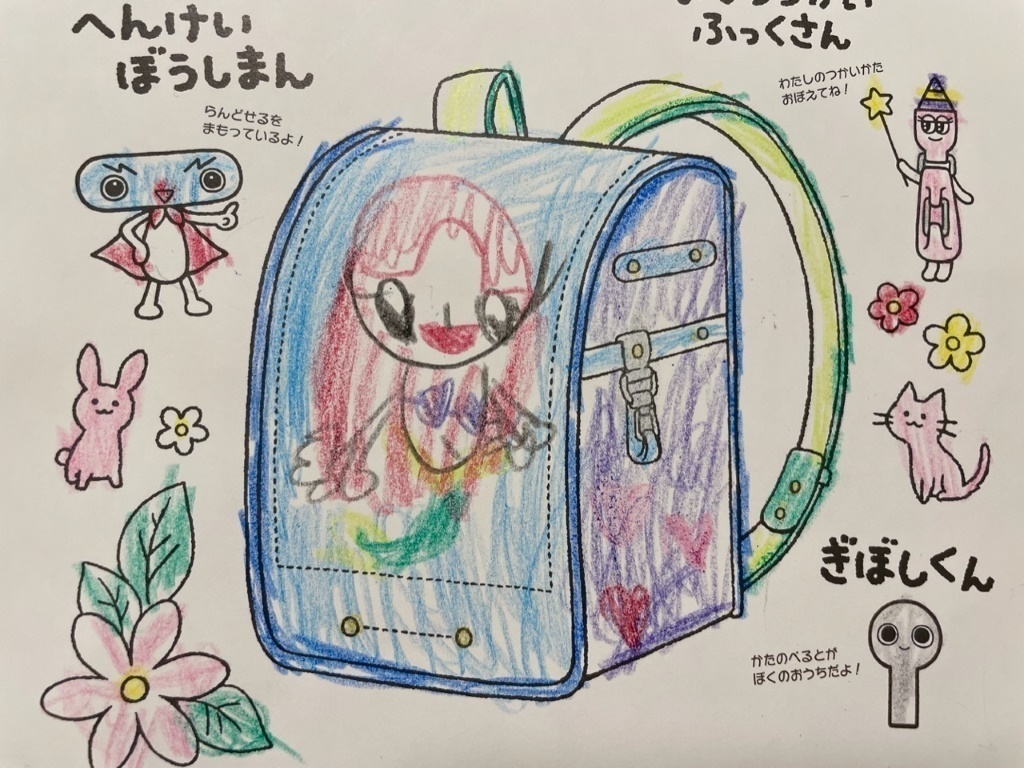 へんけい
ぼうしまん
らんどせるを
まもっているよ！
ふっくさん
わたしのつかいかた
おぼえてね！
ぎぼしくん
かたのべるとが
ぼくのおうちだよ！